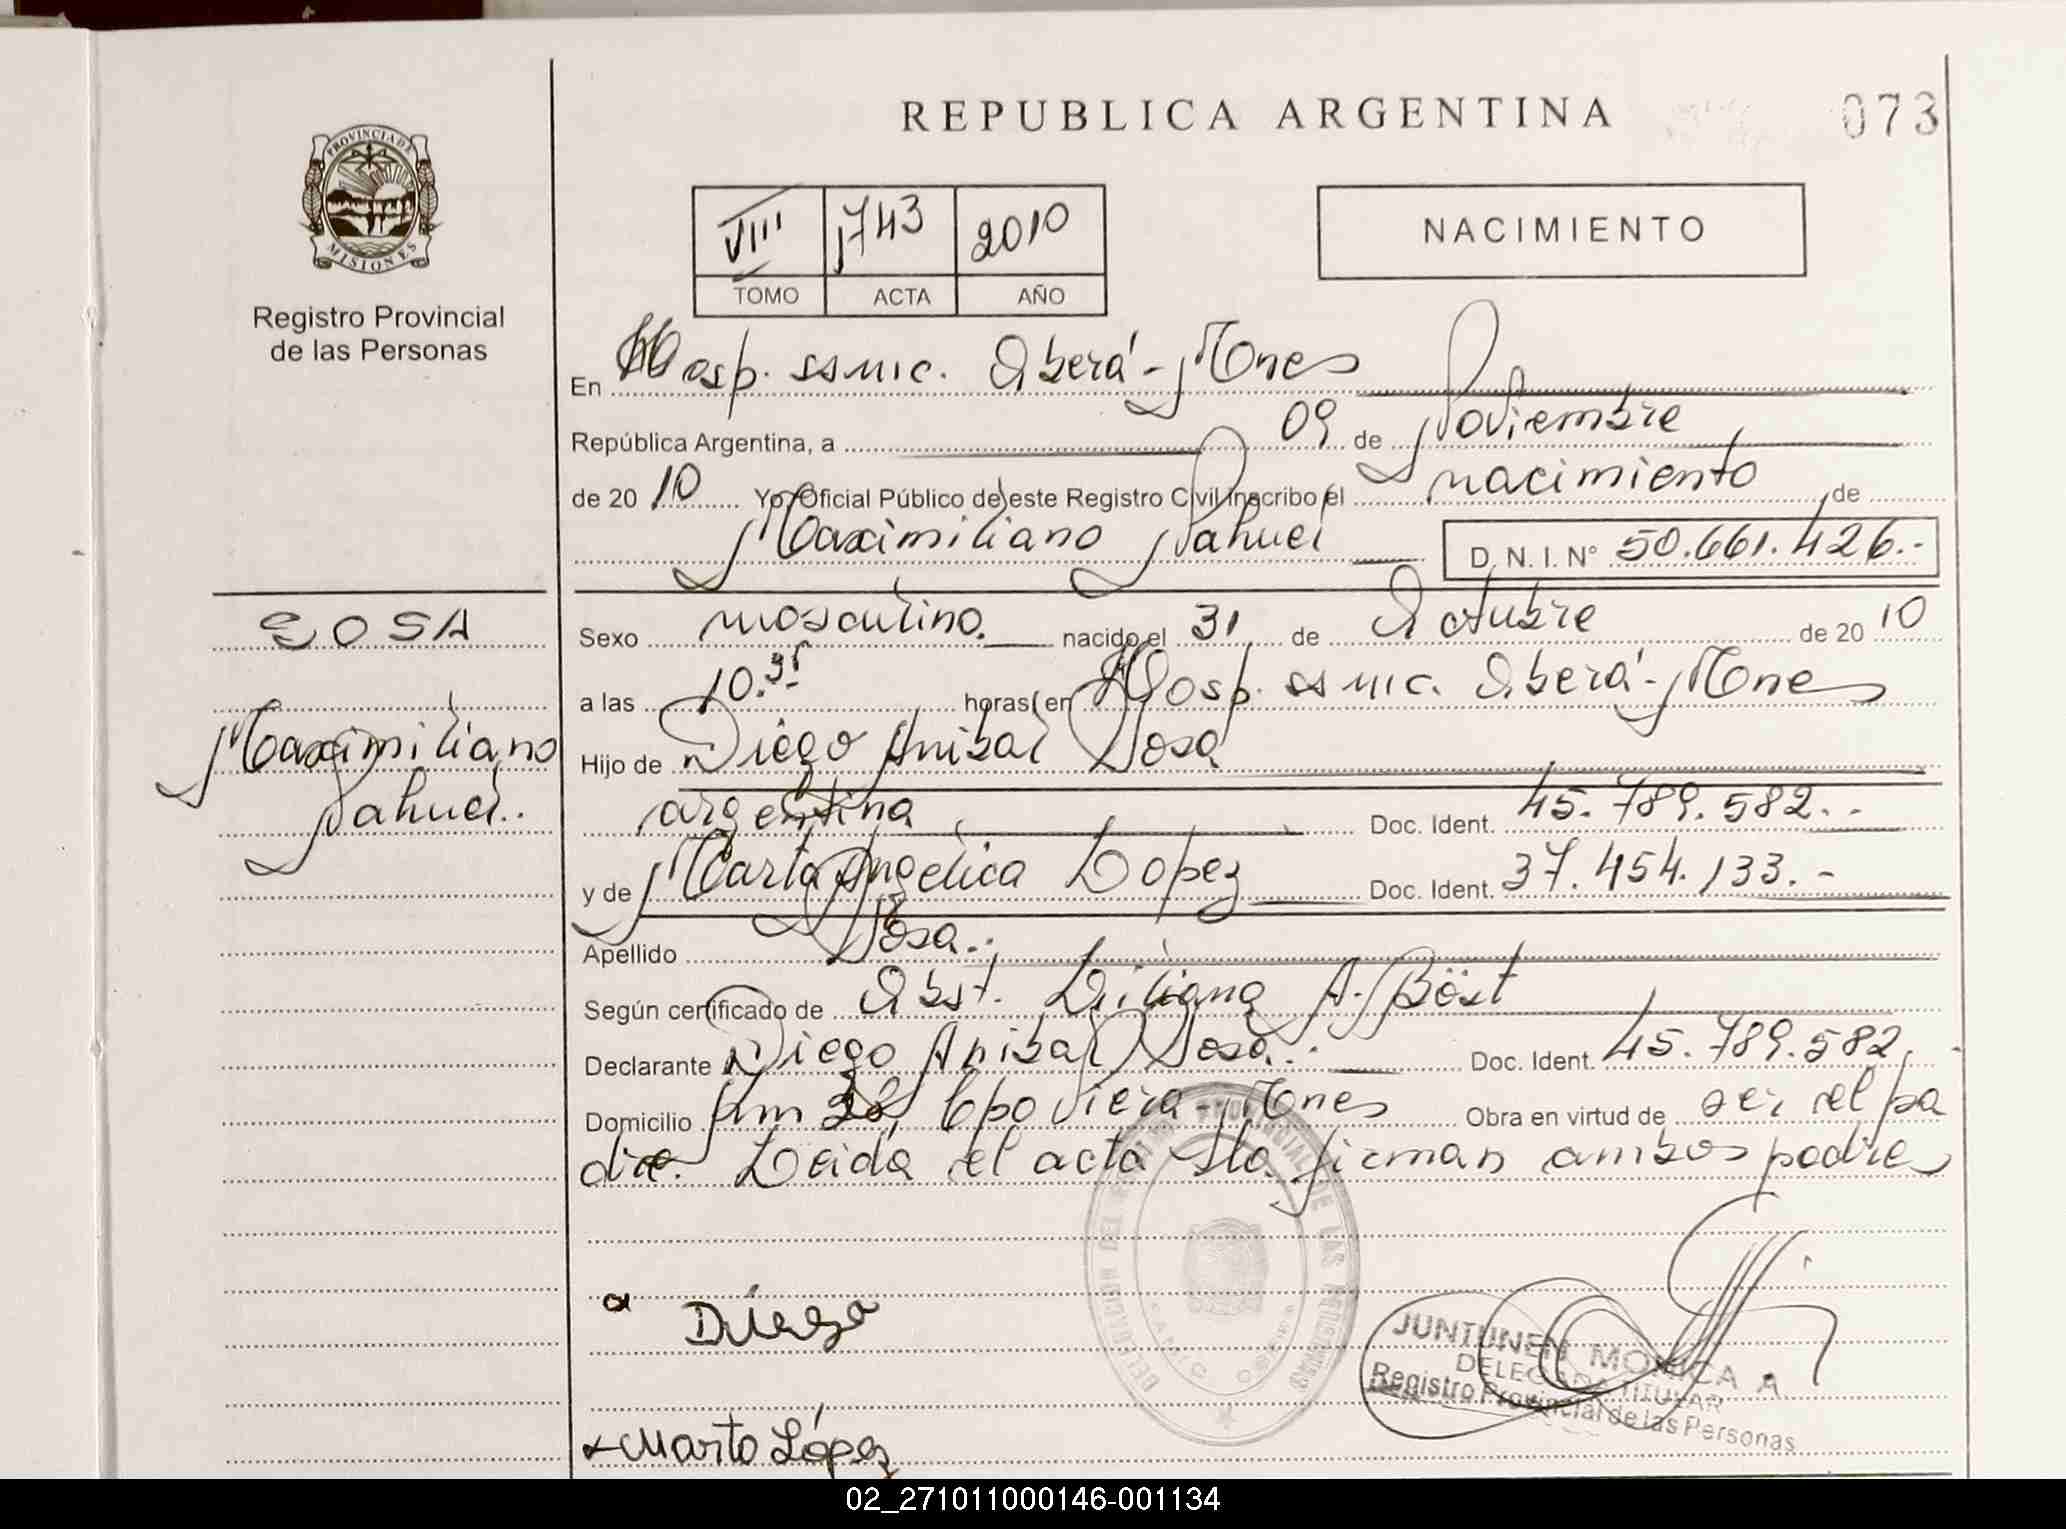 REPUBLICA ARGENTINA
073
PROVINCIA DE
MISIONES
Registro Provincial
de las Personas
VIII 1743 2010
TOMO ACTA AÑO
NACIMIENTO
En Hosp. ssmic. Oberá - Mnes
República Argentina, a 09 de Noviembre
de 20 10 Yo, Oficial Público de este Registro Civil inscribo el nacimiento de
Maximiliano Nahuel D. N. I. Nº 50.661.426.-
SOSA
Maximiliano
Nahuel.
Sexo masculino. nacido el 31 de Octubre de 20 10
a las 10.35 horas en Hosp. ssmic. Oberá - Mnes
Hijo de Diego Anibal Sosa
argentina Doc. Ident. 45.789.582.-
y de Marta Angélica Lopez Doc. Ident. 37.454.133.-
Apellido Sosa.
Según certificado de Obst. Liliana A. Böxt
Declarante Diego Anibal Sosa. Doc. Ident. 45.789.582.
Domicilio Km Cpo Viera - Mnes Obra en virtud de ser el pa
dre. Leida el acta la firman ambos padres
DELEGACION DEL REGISTRO PROVINCIAL DE LAS PERSONAS
Diego
JUNTUNEN MONICA A
DELEGADA TITULAR
Registro Provincial de las Personas
Marta López
02_271011000146-001134